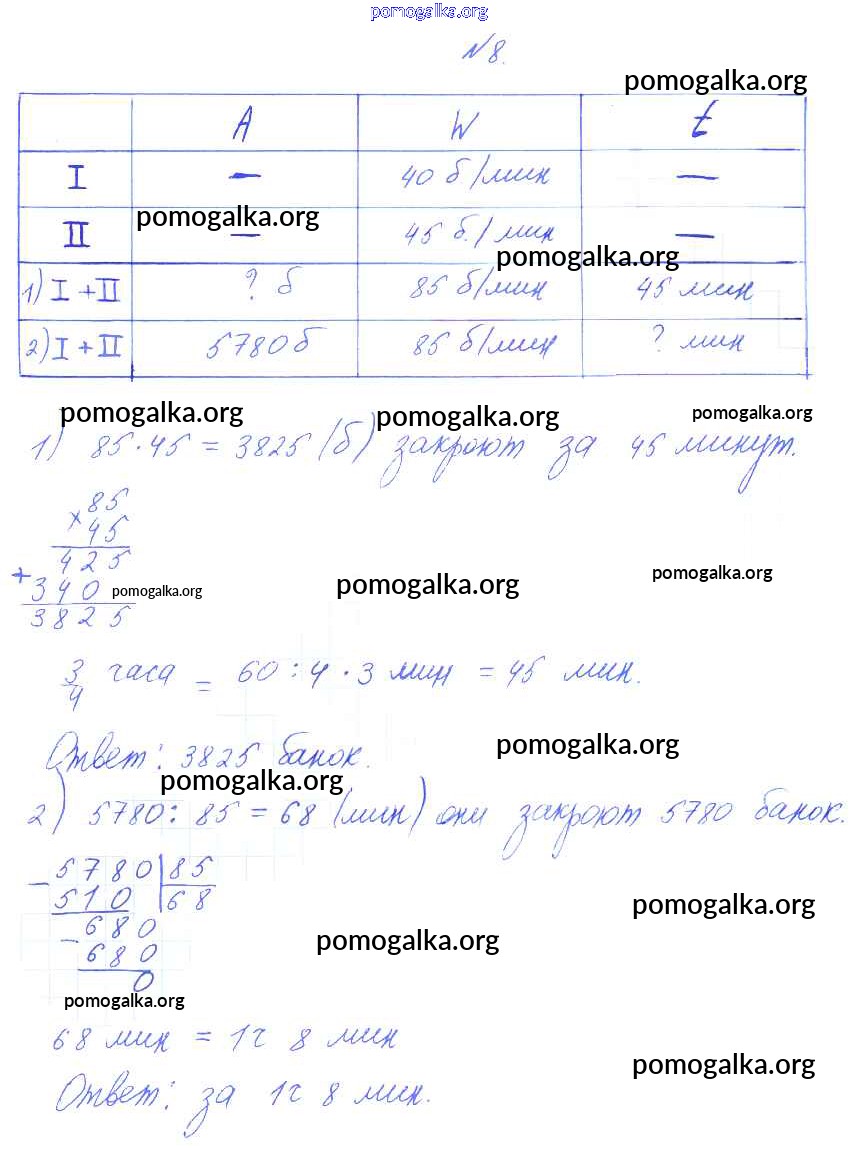 pomogalka.org
N8.
pomogalka.org
A W t
I — 40 б/мин —
pomogalka.org
II — 45 б./мин —
pomogalka.org
1) I + II ? б 85 б/мин 45 мин
2) I + II 5780 б 85 б/мин ? мин
pomogalka.org pomogalka.org pomogalka.org
1) 85 · 45 = 3825 (б) закроют за 45 минут.
85
× 45
425
pomogalka.org
+ 340 pomogalka.org pomogalka.org
3825
3/4 часа = 60 : 4 · 3 мин = 45 мин.
pomogalka.org
Ответ: 3825 банок.
pomogalka.org
2) 5780 : 85 = 68 (мин) они закроют 5780 банок.
- 5780 | 85
510 | 68
pomogalka.org
- 680
pomogalka.org
680
0
pomogalka.org
68 мин = 1ч 8 мин
pomogalka.org
Ответ: за 1ч 8 мин.